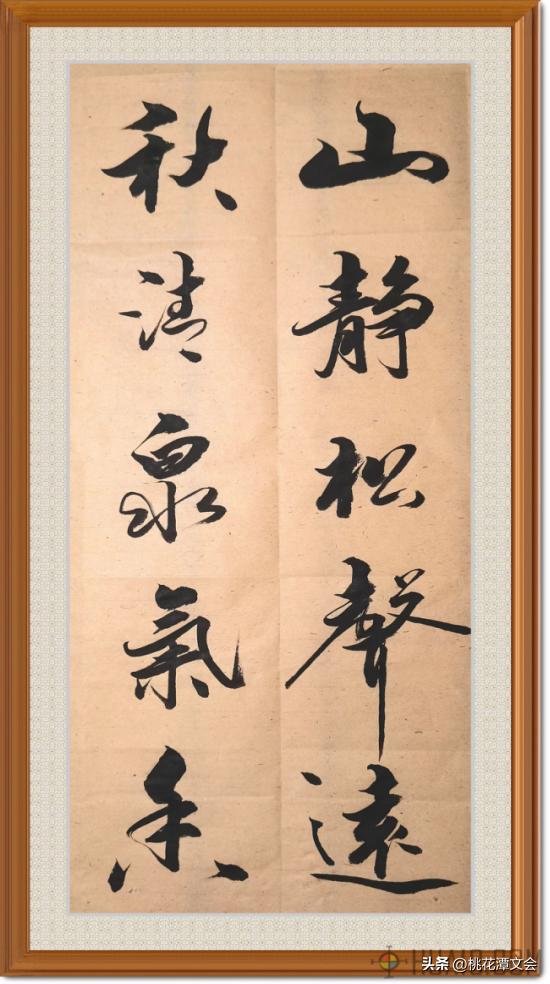 山静松聲遠
秋清泉氣香
头条 @桃花潭文会